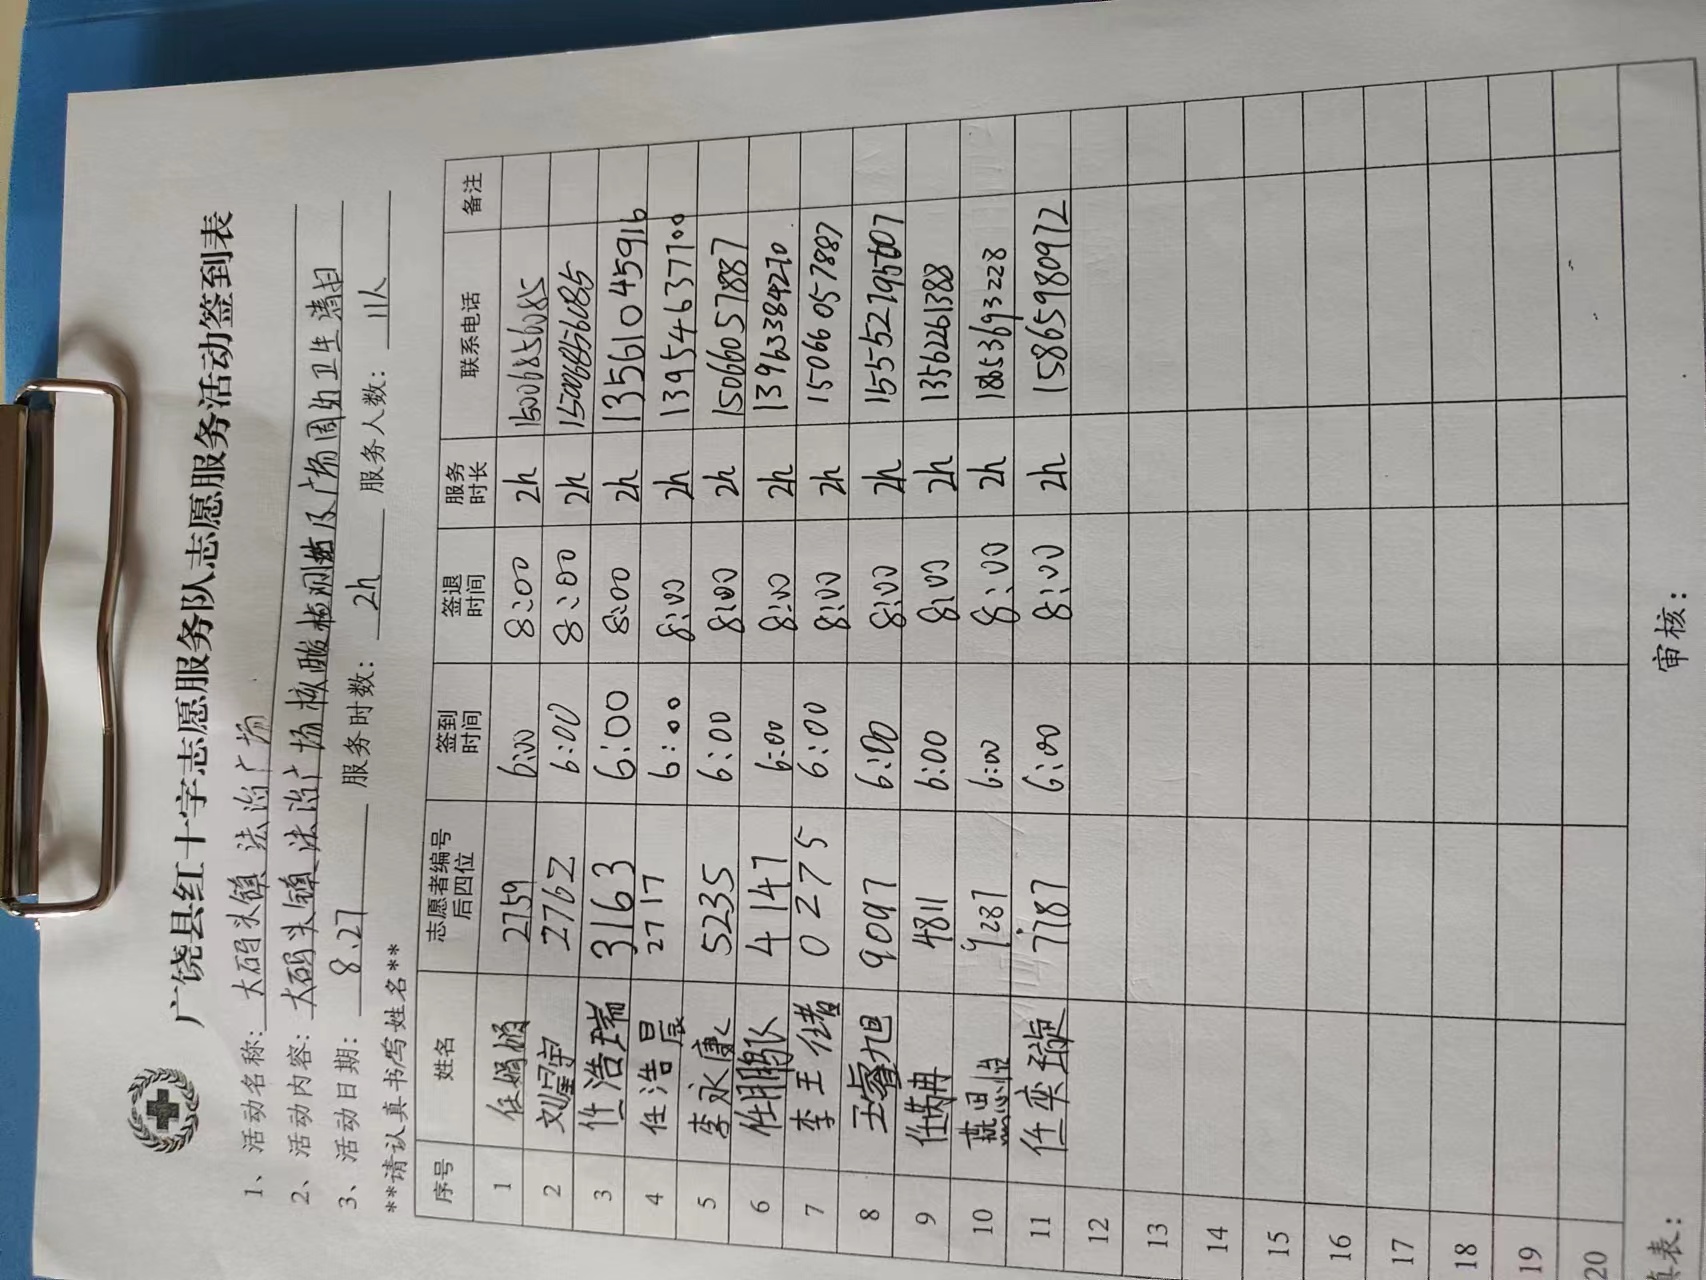 广饶县红十字志愿服务队志愿服务活动签到表
1、活动名称：大码头镇法治广场
2、活动内容：大码头镇法治广场核酸检测点及广场周边卫生清扫
3、活动日期：8.27 服务时数：2h 服务人数：11人
**请认真书写姓名**
序号 姓名 志愿者编号后四位 签到时间 签退时间 服务时长 联系电话 备注
1 任娟娟 2759 6:00 8:00 2h 15006856085
2 刘家宇 2762 6:00 8:00 2h 15006856085
3 任浩瑞 3163 6:00 8:00 2h 13561045916
4 任浩晨 2717 6:00 8:00 2h 13954637700
5 李永康 5235 6:00 8:00 2h 15066057887
6 任鹏 4147 6:00 8:00 2h 13963384270
7 李王 0275 6:00 8:00 2h 15066057887
8 王睿旭 9097 6:00 8:00 2h 1555219
9 任芮冉 4811 6:00 8:00 2h 13562261388
10 燕思怡 9287 6:00 8:00 2h 18553693228
11 任奕璇 7787 6:00 8:00 2h 15865980972
12
13
14
15
16
17
18
19
20
填表： 审核：